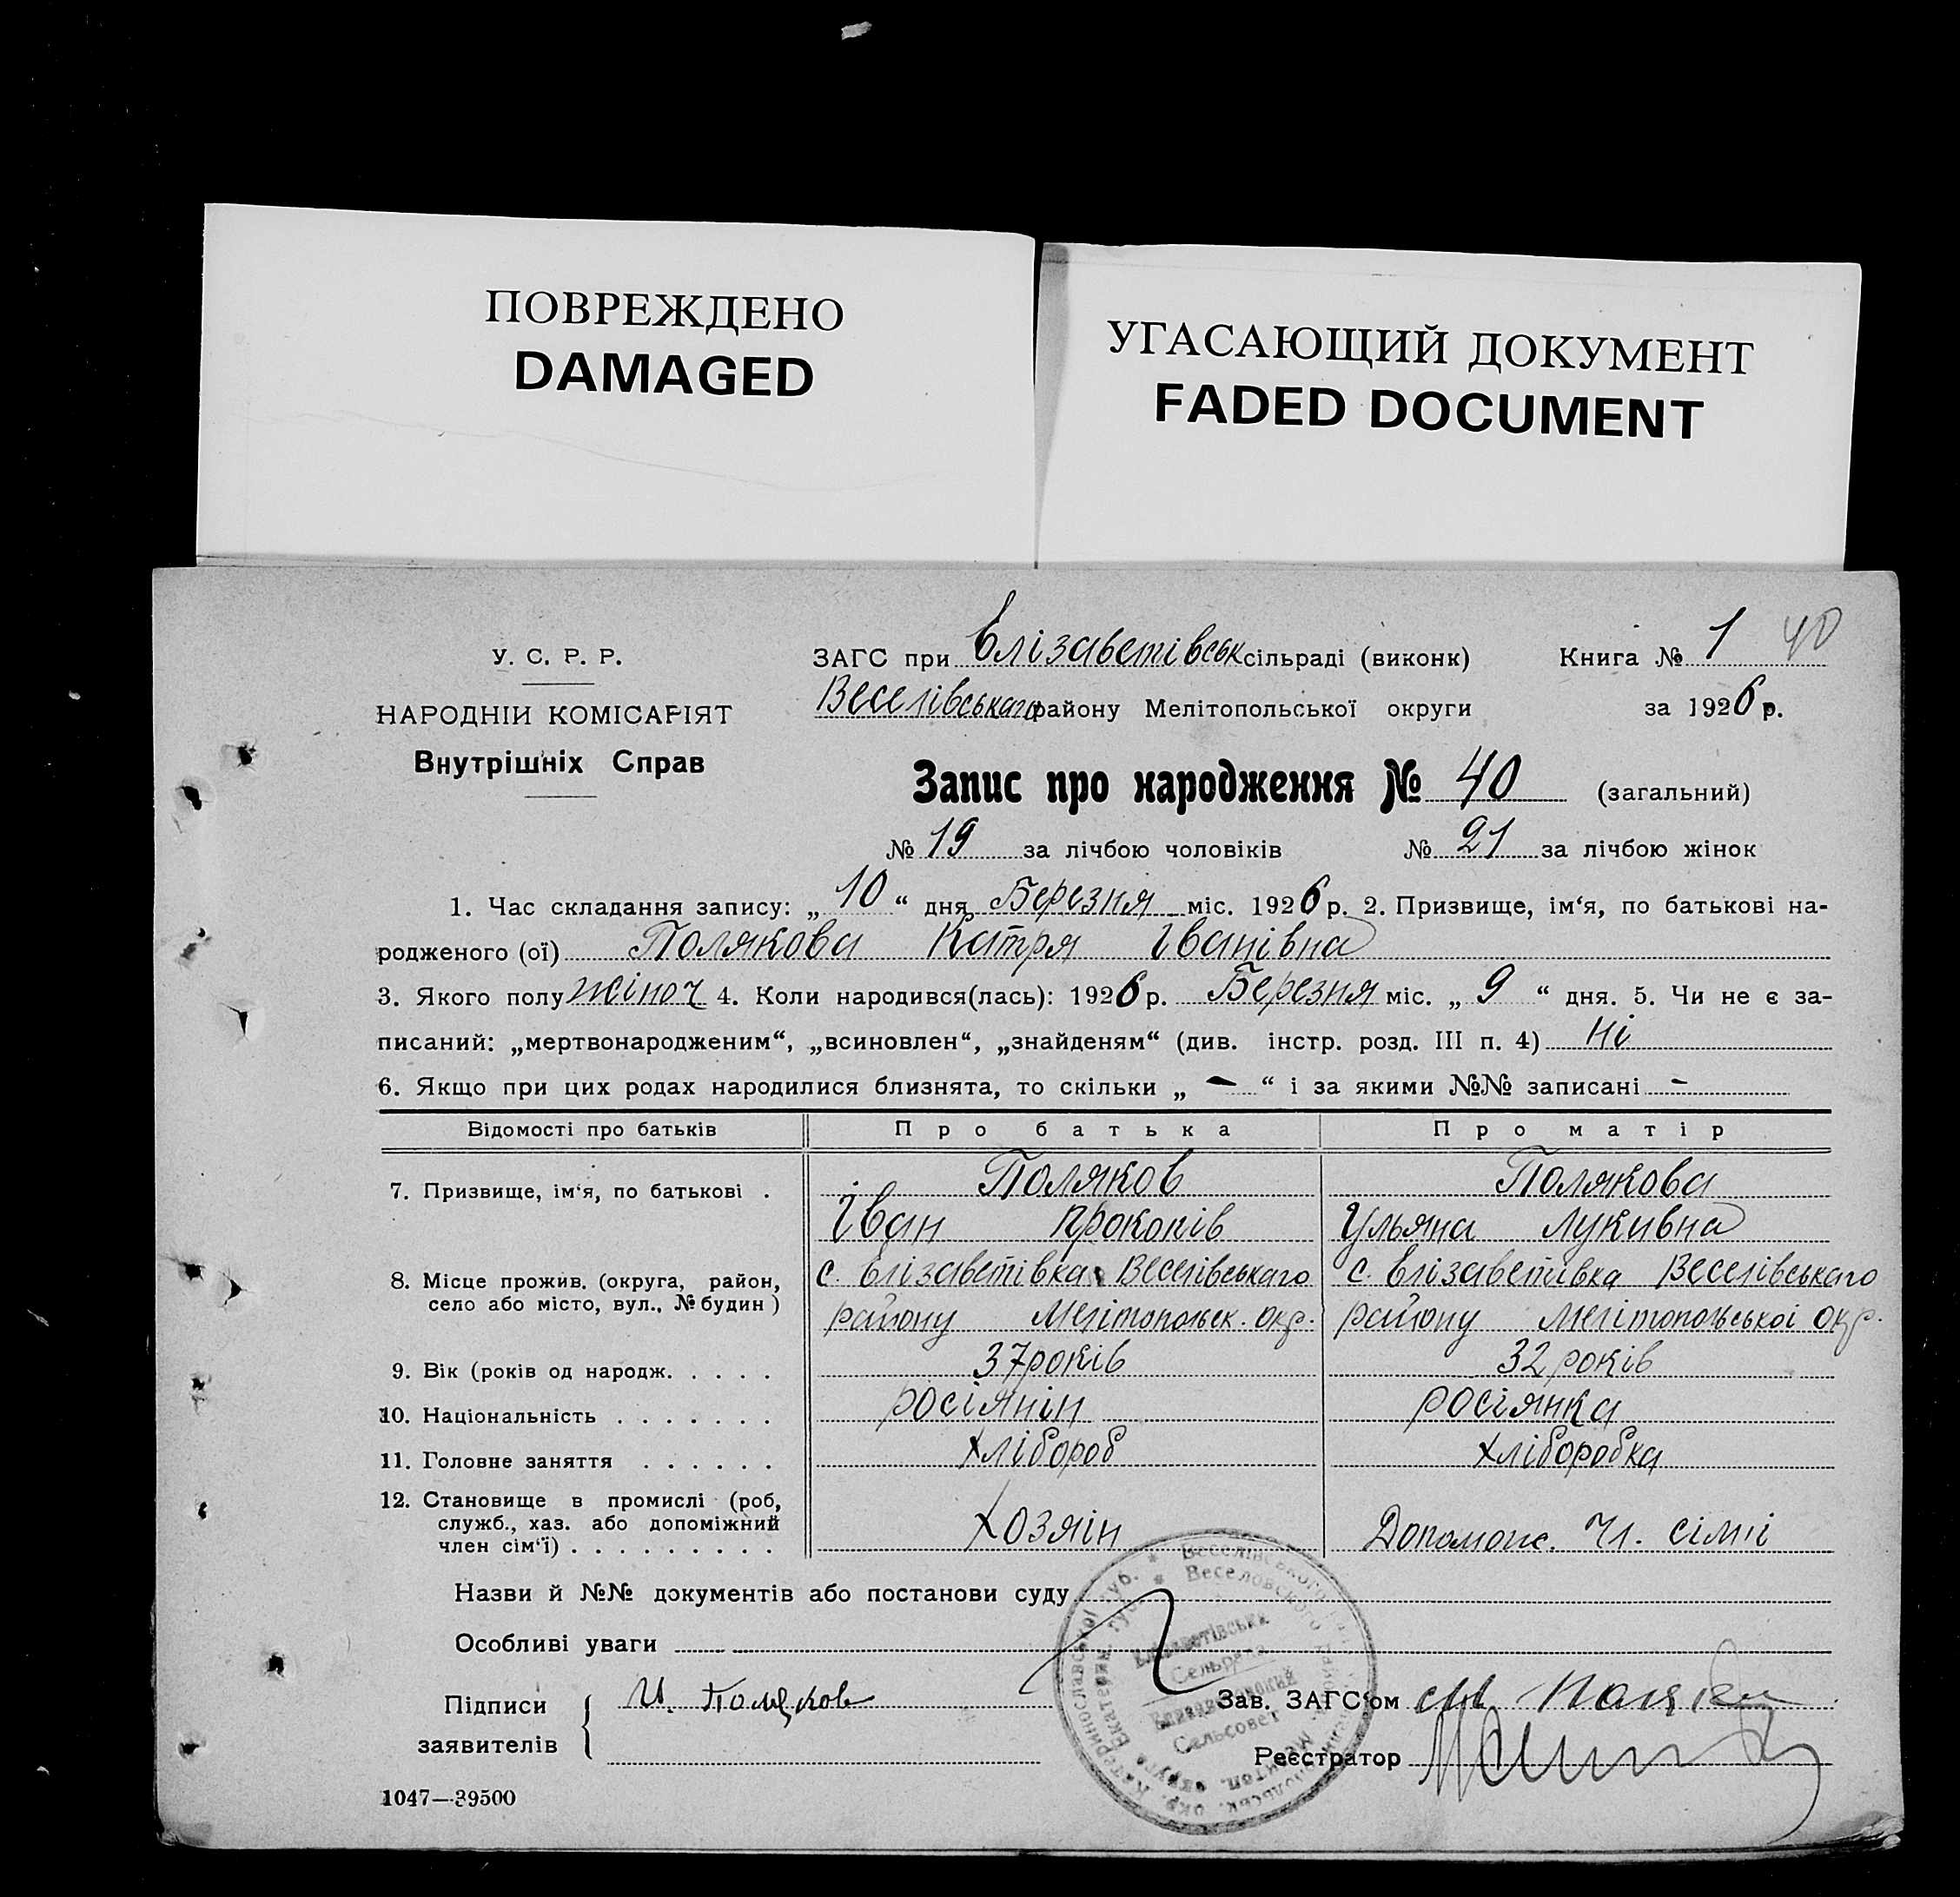 ПОВРЕЖДЕНО
DAMAGED
УГАСАЮЩИЙ ДОКУМЕНТ
FADED DOCUMENT
У. С. Р. Р.
НАРОДНІИ КОМІСАРІЯТ
Внутрішніх Справ
ЗАГС при Елізаветівськ сільраді (виконк) Книга № 1 40
Веселівського району Мелітопольської округи за 1926 р.
Запис про народження № 40 (загальний)
№ 19 за лічбою чоловіків № 21 за лічбою жінок
1. Час складання запису: „ 10 “ дня Березня міс. 1926 р. 2. Призвище, ім‘я, по батькові на-
родженого (ої) Полякова Катря Іванівна
3. Якого полу жіноч 4. Коли народився(лась): 1926 р. Березня міс. „ 9 “ дня. 5. Чи не є за-
писаний: „мертвонародженим“, „всиновлен“, „знайденям“ (див. інстр. розд. III п. 4) ні
6. Якщо при цих родах народилися близнята, то скільки „ - “ і за якими №№ записані -
Відомості про батьків Про батька Про матір
7. Призвище, ім‘я, по батькові . Поляков Полякова
Іван Прокопів Ульяна Лукивна
8. Місце прожив. (округа, район, с. Елізаветівка Веселівськаго с. Елізаветівка Веселівськаго
село або місто, вул., № будин ) району Мелітопольск. окр. району Мелітопольськоі окр.
9. Вік (років од народж. . . . . 37 років 32 років
10. Національність . . . . . . . росіянін росіянка
11. Головне заняття . . . . . . хлібороб хліборобка
12. Становище в промислі (роб,
служб., хаз. або допоміжний хозяін Допомож. чл. сімії
член сім‘ї) . . . . . . . . .
Назви й №№ документів або постанови суду
Особливі уваги
Підписи И. Поляков Зав. ЗАГС‘ом
заявителів Реєстратор
1047—39500
Веселівського
Веселовского
Сельрада
Сельсовет